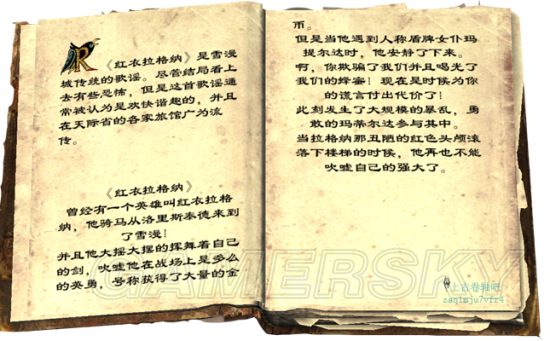 《红衣拉格纳》是雪漫
城传统的歌谣。尽管结局看上
去有些恐怖，但是这首歌谣通
常被认为是欢快谐趣的，并且
在天际省的各家旅馆广为流
传。
《红衣拉格纳》
曾经有一个英雄叫红衣拉格
纳，他骑马从洛里斯泰德来到
了雪漫！
并且他大摇大摆的挥舞着自己
的剑，吹嘘他在战场上是多么
的英勇，号称获得了大量的金
币。
但是当他遇到人称盾牌女仆玛
提尔达时，他安静了下来。
啊，你欺骗了我们并且喝光了
我们的蜂蜜！现在是时候为你
的谎言付出代价了！
此刻发生了大规模的暴乱，勇
敢的玛蒂尔达参与其中。
当拉格纳那丑陋的红色头颅滚
落下楼梯的时候，他再也不能
吹嘘自己的强大了。
GAMERSKY
上古卷轴吧
zaq1mju7vfr4